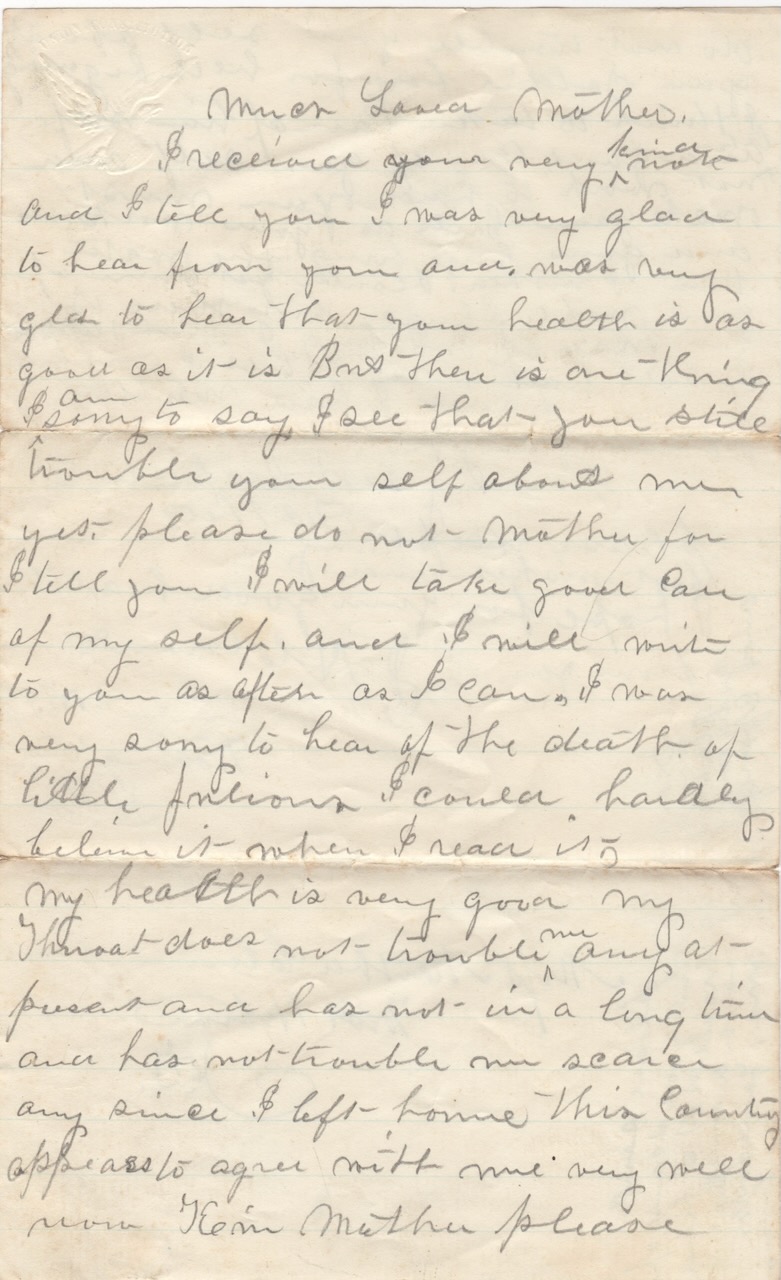 Much Loved Mother.
I received your very kind note
and I tell you I was very glad
to hear from you and, was very
glad to hear that your health is as
good as it is But there is one thing
I am sorry to say I see that you still
trouble your self about me
yet. please do not Mother for
I tell you I will take good Care
of my self. and I will write
to you as often as I can, I was
very sorry to hear of the death of
little Julious I could hardly
believe it when I read it,
my health is very good my
Throat does not trouble me any at
present and has not in a long time
and has not trouble me scarce
any since I left home This Country
appears to agree with me very well
now Kein Mother please